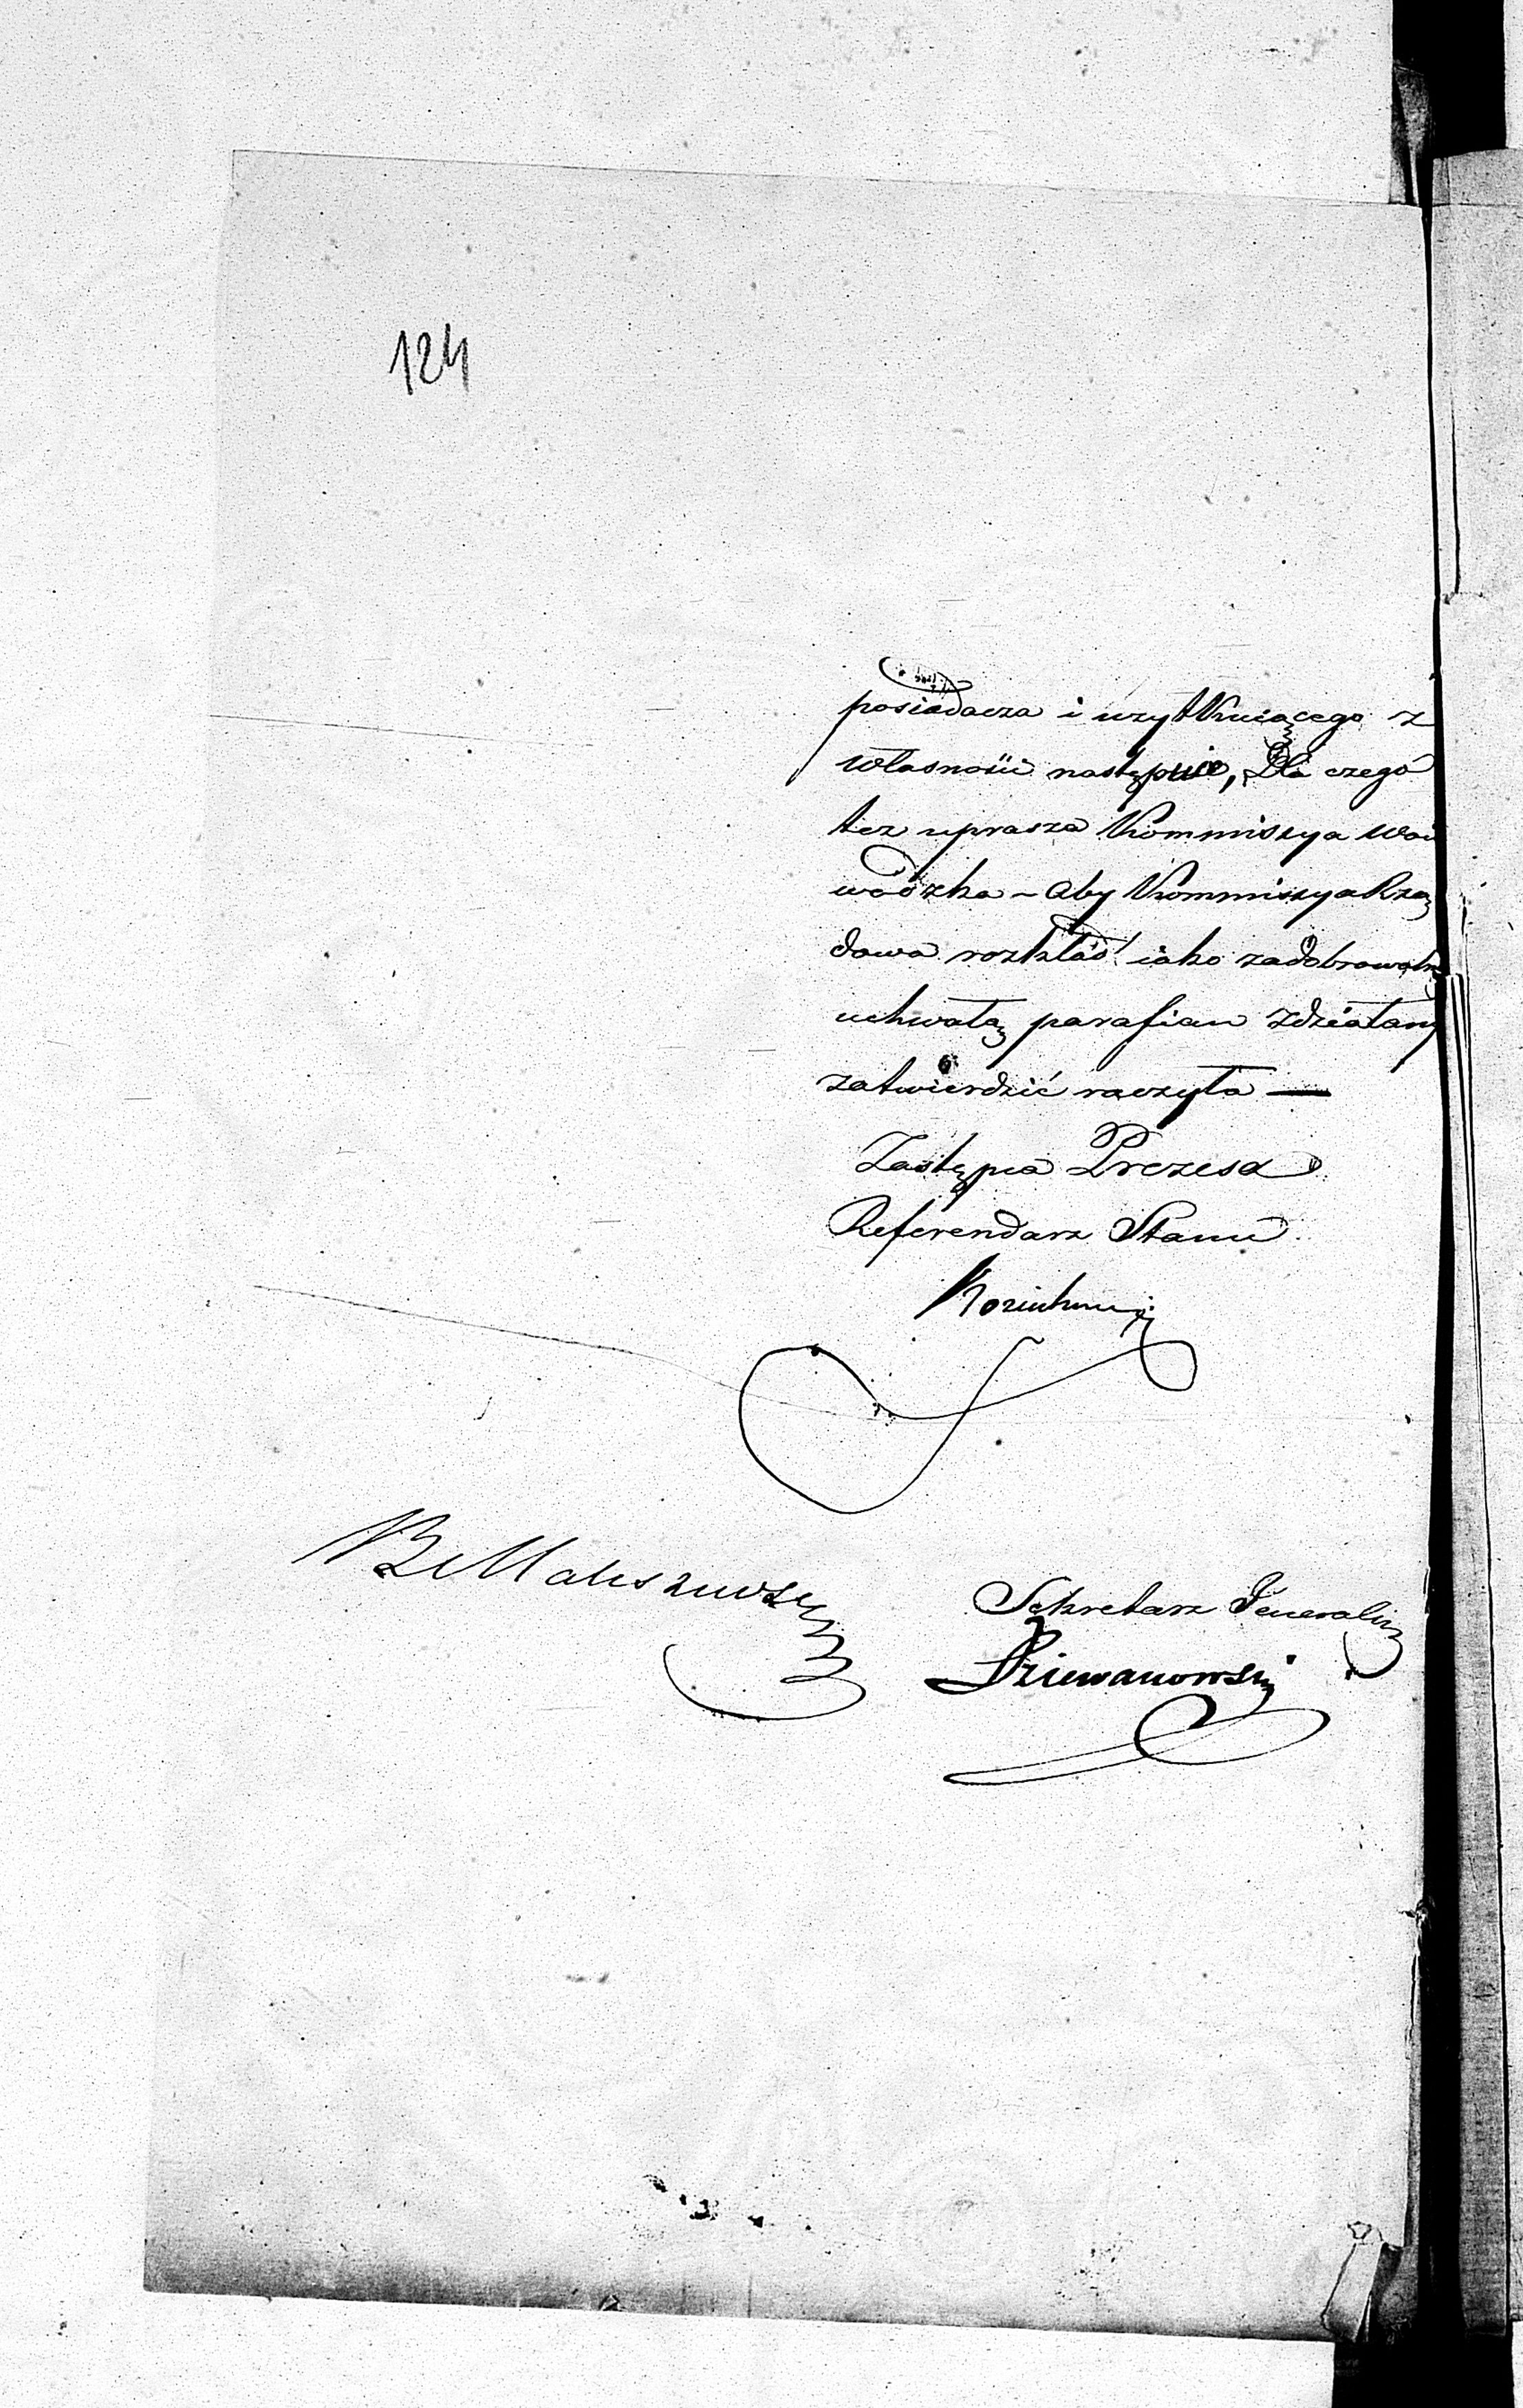 124
posiadacza i uzytkuiącego z
własności następuie, Dla czego
tez uprasza Kommissya Woie
wodzka - aby Kommissya Rzą
dowa rozkład iako za dobrowolną
uchwałą parafian zdziałany
zatwierdzić raczyła —
Zastępca Prezesa
Referendarz Stanu
Sekretarz Jeneralny
Dziewanowski